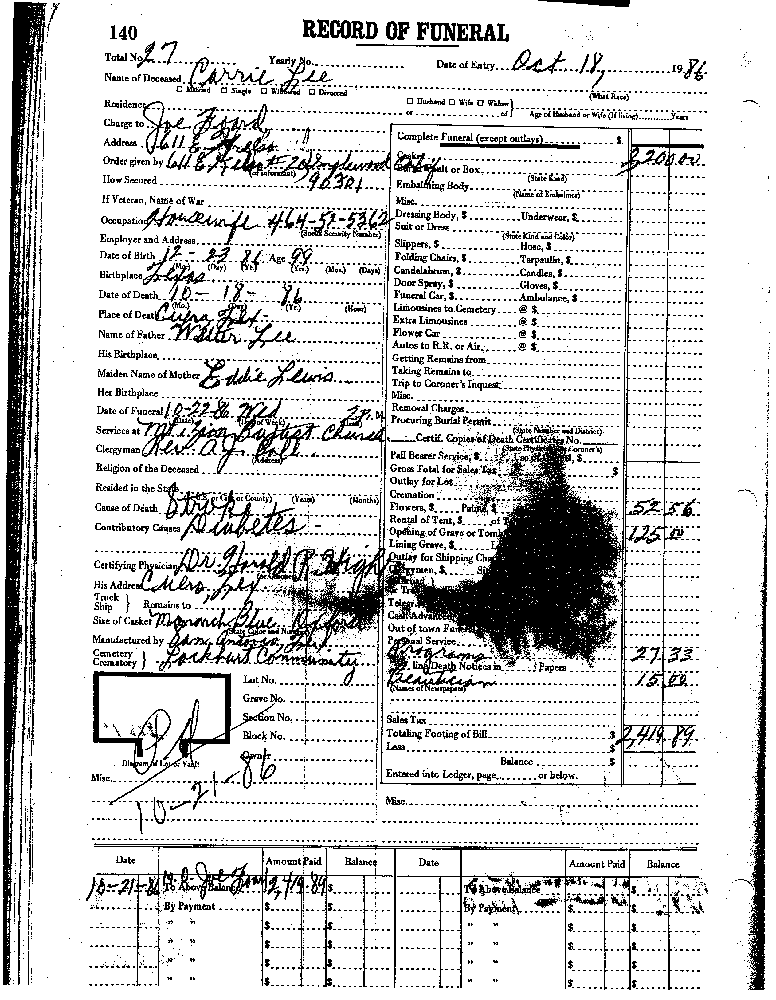 140
RECORD OF FUNERAL
Total No. 27 Yearly No. Date of Entry Oct 18, 1986
Name of Deceased Carrie Lee
Married Single Widowed Divorced (What Race)
Residence Husband Wife Widow
or of Age of Husband or Wife (If living) Years
Charge to Joe Ford
Address 611 E
Order given by 611 E #20 Inglewood
(or informant)
How Secured 90301
If Veteran, Name of War
Occupation Housewife 464-52-5362
(Social Security Number)
Employer and Address
Date of Birth 12-23-86 Age 99
(Mo.) (Day) (Yr.) (Yrs.) (Mos.) (Days)
Birthplace Texas
Date of Death 10-18-86
(Mo.) (Day) (Yr.) (Hour)
Place of Death Cuero Tex.
Name of Father Walter Lee
His Birthplace
Maiden Name of Mother Eddie Lewis
Her Birthplace
Date of Funeral 10-22-86 Wed 2 p.m.
(Date) (Day of Week) (Hour)
Services at Mt. Zion Baptist Church
Clergyman Rev. A.J.
(Address)
Religion of the Deceased
Resided in the State
(City or County) (Years) (Months)
Cause of Death
Contributory Causes Diabetes
Certifying Physician Dr. Harold R.
His Address Cuero, Tex.
Truck
Ship Remains to
Size of Casket Monarch Blue Oxford
(State Color and Number)
Manufactured by San Antonio, Tex
Cemetery
Crematory Lockhart Community
Lot No.
Grave No.
Section No.
Block No.
Owner
Diagram of Lot or Vault
Pd
10-21-86
Misc.
Complete Funeral (except outlays) $
Casket 2,200.00
Vault or Box
(State Kind)
Embalming Body
(Name of Embalmer)
Misc.
Dressing Body, $ Underwear, $
Suit or Dress
(State Kind and Color)
Slippers, $ Hose, $
Folding Chairs, $ Tarpaulin, $
Candelabrum, $ Candles, $
Door Spray, $ Gloves, $
Funeral Car, $ Ambulance, $
Limousines to Cemetery @ $
Extra Limousines @ $
Flower Car @ $
Autos to R.R. or Air @ $
Getting Remains from
Taking Remains to
Trip to Coroner's Inquest
Misc.
Removal Charges
Procuring Burial Permit
(State Number and District)
Certif. Copies of Death Certificates No.
(State Physician or Coroner's)
Pall Bearer Service, $
Gross Total for Sales Tax $
Outlay for Lot
Cremation
Flowers, $ 52.56
Rental of Tent, $
Opening of Grave or Tomb 125.00
Lining Grave, $
Outlay for Shipping
Clergymen, $
Cash Advance
Out of town
Personal Service
Programs 27.33
Death Notices in Papers
Beautician 15.00
(Names of Newspapers)
Sales Tax
Totaling Footing of Bill $ 2,419.89
Less $
Balance $
Entered into Ledger, page or below.
Misc.
Date Amount Paid Balance Date Amount Paid Balance
10-21-86 To Above Balance Joe Ford 2,419.89 $ To Above Balance $
By Payment $ $ By Payment $ $
" " $ $ " " $ $
" " $ $ " " $ $
" " $ $ " " $ $
" " $ $ " " $ $